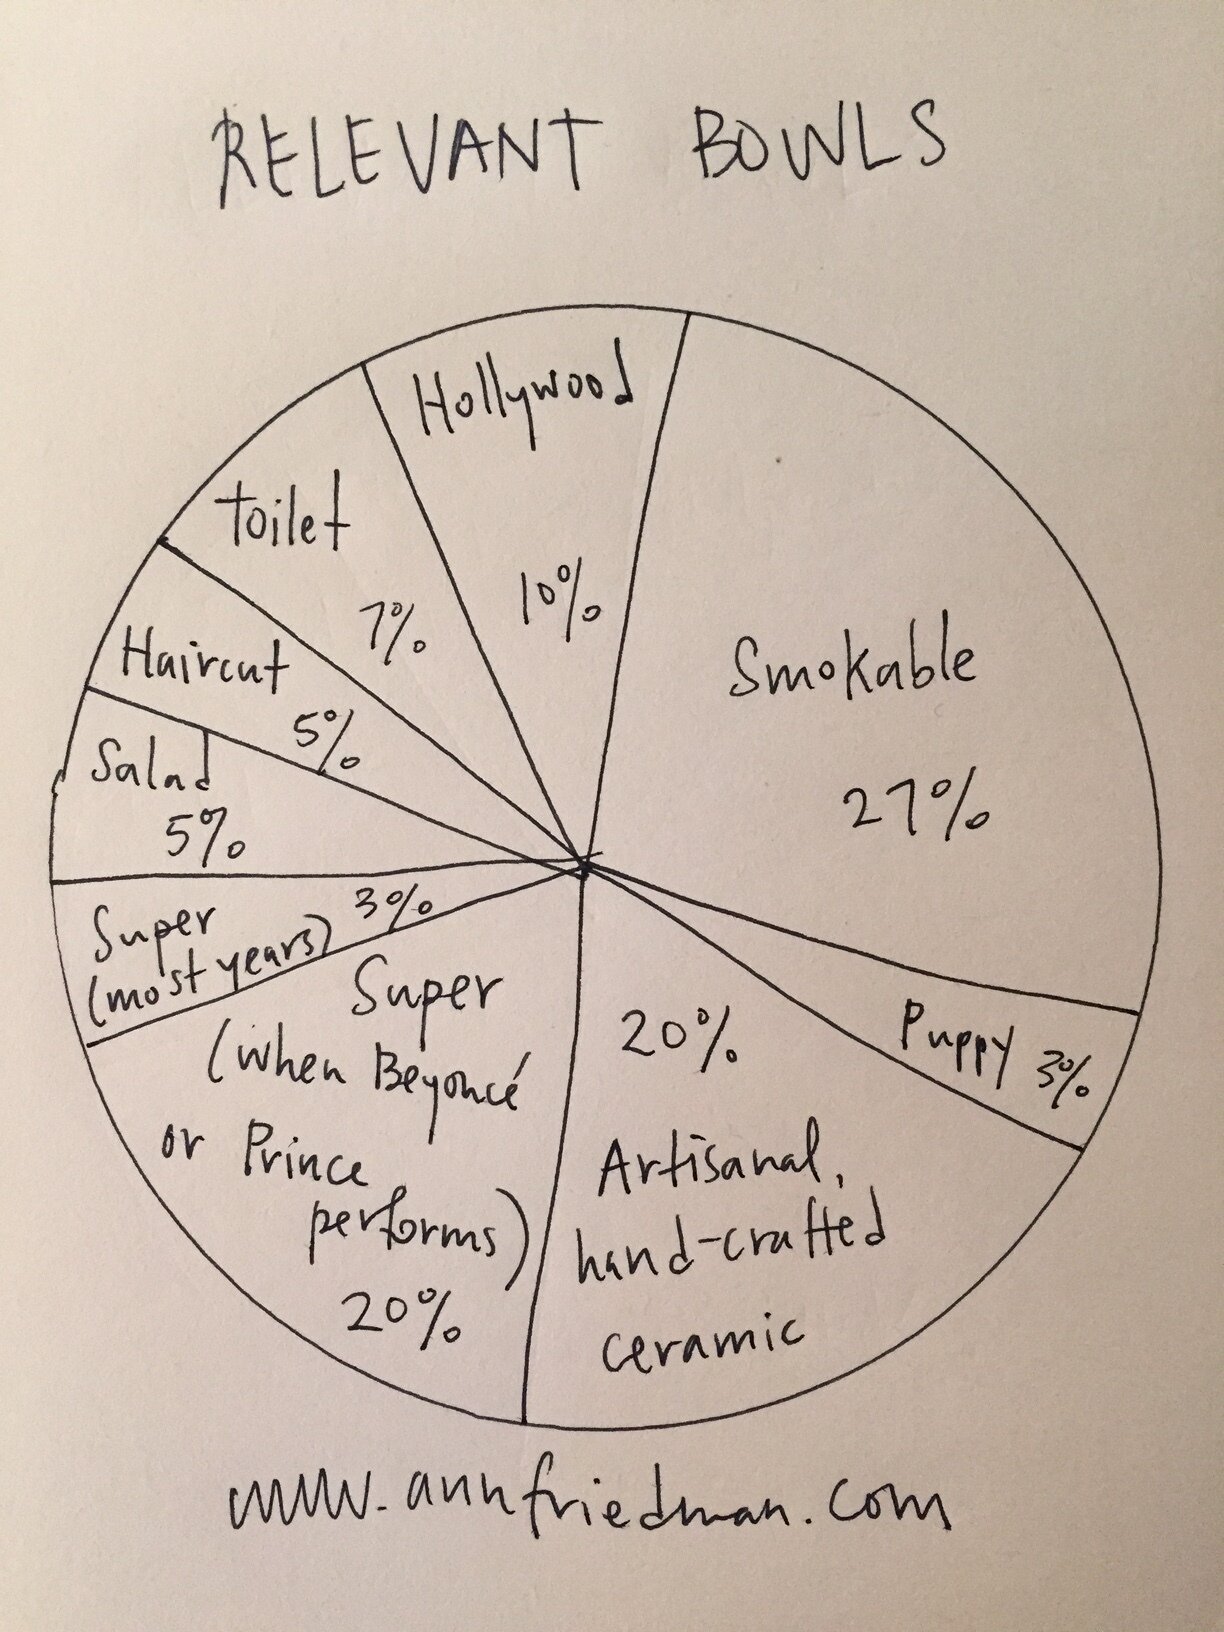 RELEVANT BOWLS
Hollywood
10%
Smokable
27%
Puppy 3%
20%
Artisanal,
hand-crafted
ceramic
Super
(when Beyoncé
or Prince
performs)
20%
Super
(most years)
3%
Salad
5%
Haircut
5%
Toilet
7%
www.annfriedman.com